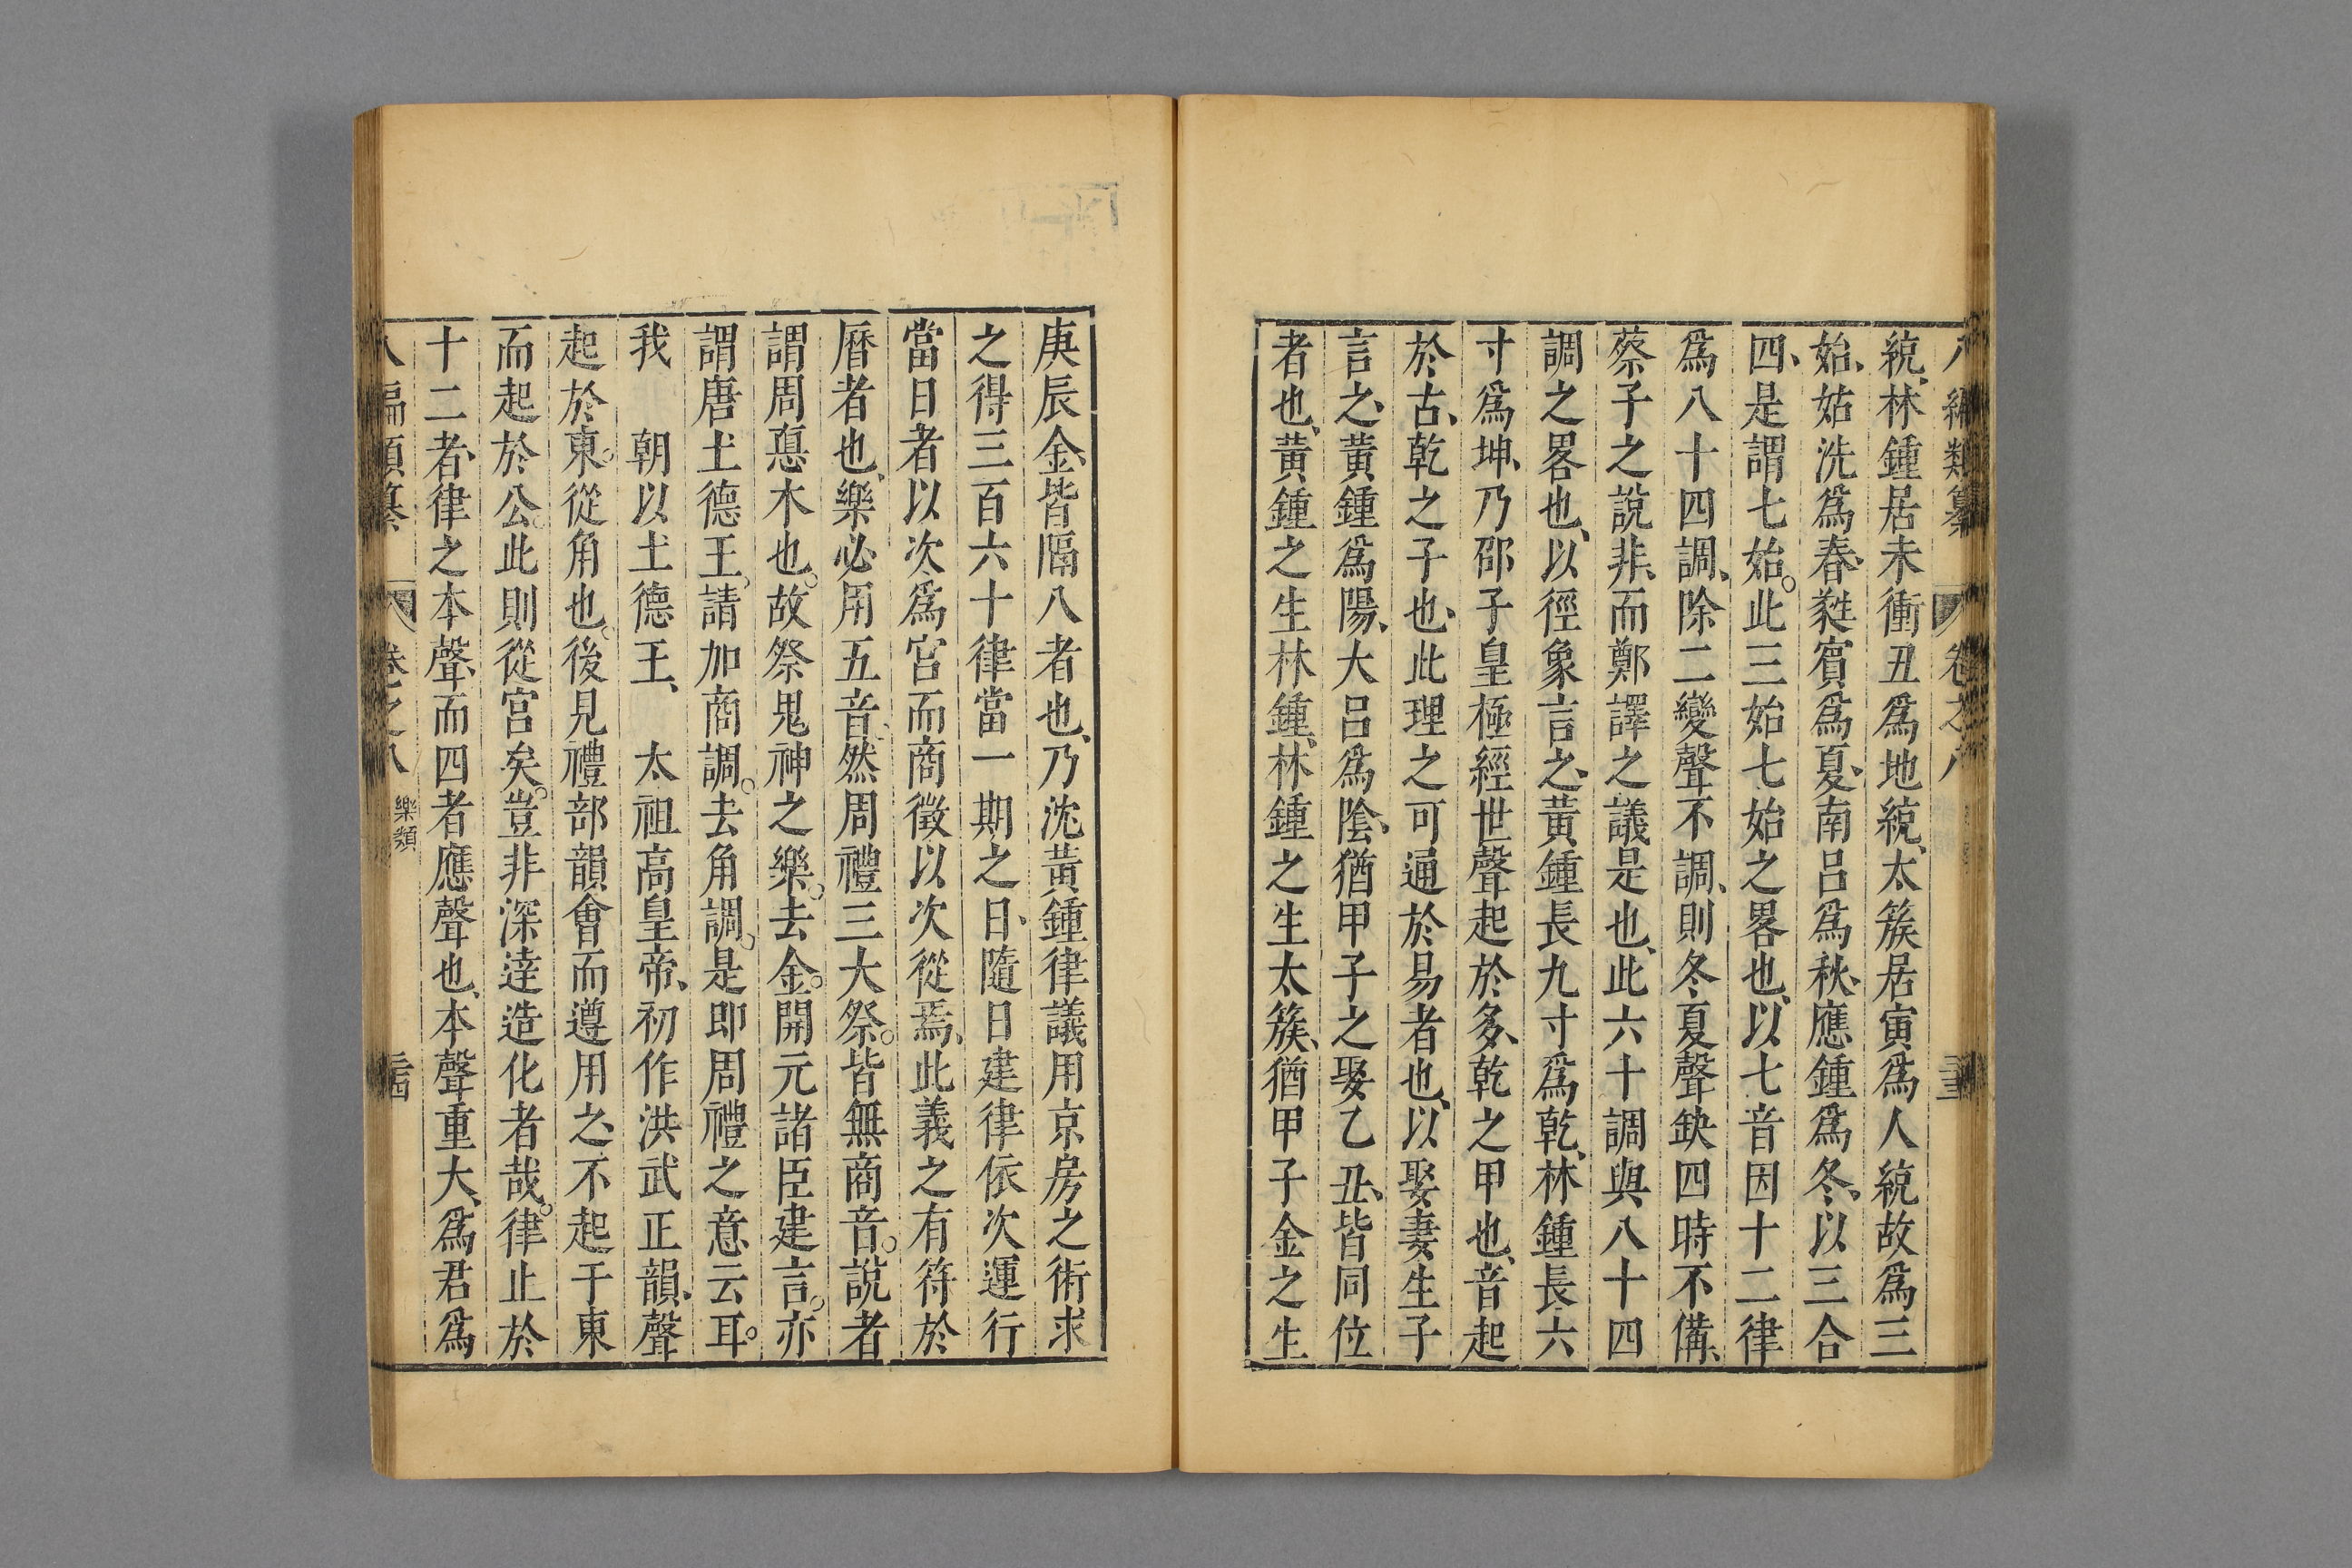 八編類纂 卷之八 三
統、林鍾居未衝丑爲地統、太簇居寅爲人統故爲三
始、姑洗爲春、蕤賓爲夏、南呂爲秋、應鍾爲冬、以三合
四、是謂七始。此三始七始之畧也、以七音因十二律
爲八十四調、除二變聲不調、則冬夏聲缺四時不備、
蔡子之說非、而鄭譯之議是也、此六十調與八十四
調之畧也、以徑象言之、黃鍾長九寸爲乾、林鍾長六
寸爲坤、乃邵子皇極經世聲起於多、乾之甲也、音起
於古、乾之子也、此理之可通於易者也、以娶妻生子
言之、黃鍾爲陽、大呂爲陰、猶甲子之娶乙丑、皆同位
者也、黃鍾之生林鍾、林鍾之生太簇、猶甲子金之生
庚辰金、皆隔八者也、乃沈黃鍾律議用京房之術求
之得三百六十律當一期之日、隨日建律依次運行
當日者以次爲宮而商徵以次從焉、此義之有符於
曆者也、樂必用五音、然周禮三大祭。皆無商音。說者
謂周惪木也。故祭鬼神之樂。去金。開元諸臣建言。亦
謂唐土德王、請加商調。去角調。是即周禮之意云耳。
我 朝以土德王、 太祖高皇帝、初作洪武正韻、聲
起於東。從角也。後見禮部韻會而遵用之、不起于東
而起於公。此則從宮矣。豈非深逹造化者哉。律止於
十二者、律之本聲、而四者應聲也、本聲重大、爲君爲
八編類纂 卷之八 樂類 三四